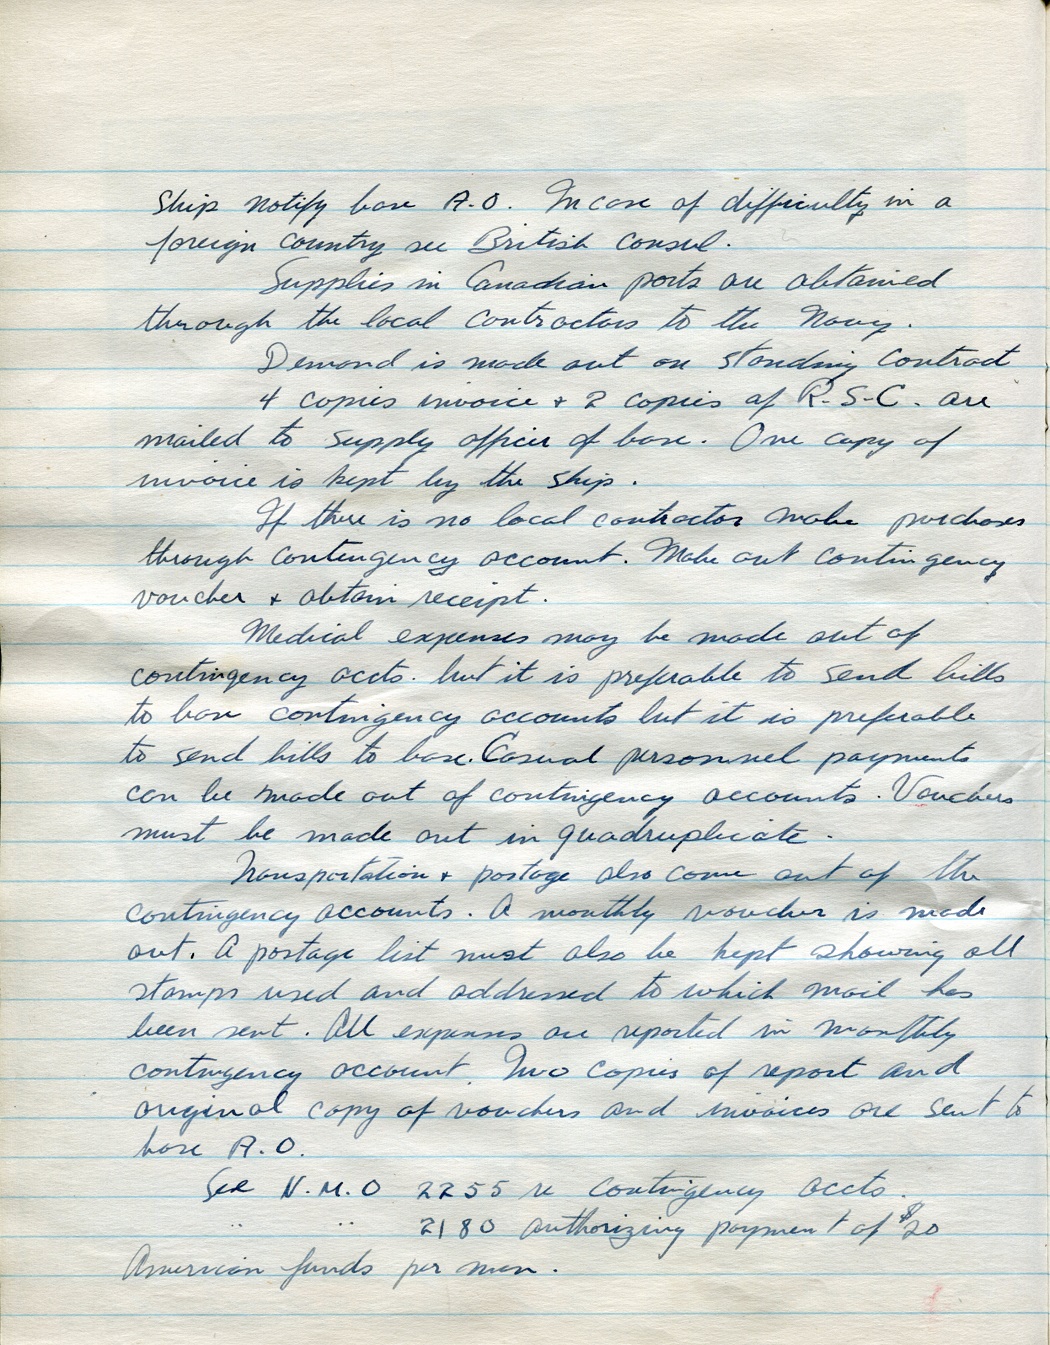 Ship notify base A.O. In case of difficulty in a
foreign country see British Consul.
Supplies in Canadian ports are obtained
through the local contractors to the Navy.
Demand is made out on standing Contract
4 copies invoice + 2 copies of R.S.C. are
mailed to supply officer of base. One copy of
invoice is kept by the ship.
If there is no local contractor make purchases
through contengency account. Make out contingency
voucher + obtain receipt.
Medical expenses may be made out of
contingency accts. but it is preferable to send bills
to base contingency accounts but it is preferable
to send bills to base. Casual personnel payments
can be made out of contingency accounts. Vouchers
must be made out in quadruplicate.
Transportation + postage also come out of the
contingency accounts. A monthly voucher is made
out. A postage list must also be kept showing all
stamps used and addressed to which mail has
been sent. All expenses are reported in monthly
contingency account. Two copies of report and
original copy of vouchers and invoices are sent to
base A.O.
See N.M.O 2255 re contingency accts.
" " 2180 authorizing payment of $20
American funds per man.